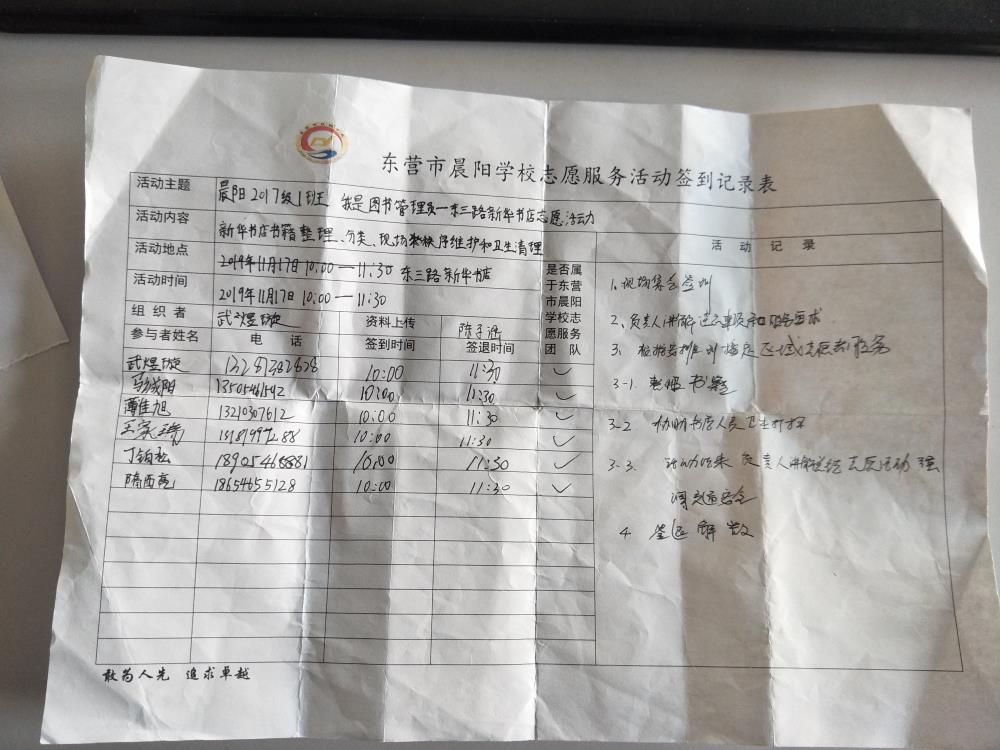 东营市晨阳学校志愿服务活动签到记录表
活动主题 晨阳2017级1班 我是图书管理员—东三路新华书店志愿活动
活动内容 新华书店书籍整理、分类、现场秩序维护和卫生清理
活动地点 2019年11月17日10:00—11:30 东三路新华书店
活动时间 2019年11月17日 10:00—11:30
组织者 武煜璇 资料上传 陈子涵
参与者姓名 电话 签到时间 签退时间 是否属于东营市晨阳学校志愿服务团队
武煜璇 13281382828 10:00 11:30 ✓
马浅阳 13505461592 10:00 11:30 ✓
薄佳旭 13210307612 10:00 11:30 ✓
10:00 11:30 ✓
丁铂崧 18905465881 10:00 11:30 ✓
隋西亮 18654655128 10:00 11:30 ✓
活动记录
1、现场集合签到
2、负责人讲解注意事项和服务要求
3、指定区域志愿服务
3-1 整理书籍
3-2 协助书店人员卫生打扫
3-3 活动结束负责人讲解总结志愿活动 强
调交通安全
4 签退解散
敢为人先 追求卓越